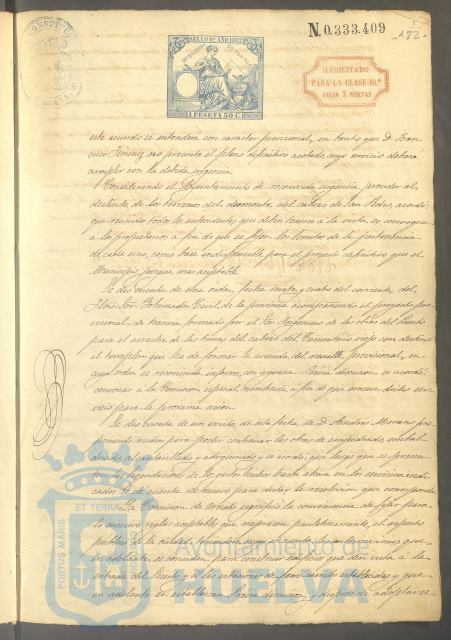 N. 0.333.409
-182-
SELLO 9º AÑO 1882
1 PESETA 50 C.
HABILITADO
PARA LA CLASE 10.ª
VALOR 2 PESETAS
este acuerdo se entenderá con carácter provisional, en tanto que D. Fran-
cisco Jimenez no presente el plano definitivo acotado, cuyo servicio deberá
cumplir con la debida urgencia.
Considerando el Ayuntamiento de reconocida urgencia proceder al
deslinde de los terrenos del desmonte del cabezo de San Pedro, acordó:
que reunidos todos los antecedentes que deben traerse á la vista se convoque
á los propietarios á fin de que se fijen los límites de la pertenencia
de cada uno, como base indispensable para el proyecto definitivo que el
Municipio juzgue mas aceptable.
Se dió cuenta de una orden, fecha veinte y cuatro del corriente, del
Ilmo. Sor. Gobernador Civil de la provincia acompañando el proyecto pro-
visional de tranvia formado por el Sor. Ingeniero de las obras del Puerto
para el arrastre de las tierras del cabezo del Cementerio viejo con destino
al terraplen que ha de formar la avenida del muelle provisional, en
cuya orden se recomienda informe con urgencia. Prévia discusion, se acordó:
convocar á la Comision especial nombrada á fin de que evacue dicho ser-
vicio para la próxima sesion.
Se dió cuenta de un escrito de esta fecha de D. Andrés Moreno pro-
poniendo medios para poder continuar las obras de empedrado, embal-
dosado, alcantarillado y adoquinado y se acordó: que luego que se presen-
ten las liquidaciones de los gastos hechos hasta ahora en los servicios indi-
cados se dé cuenta de nuevo para dictar la resolucion que corresponda.
La Comision de Ornato significó la conveniencia de fijar para
lo sucesivo reglas aceptables que mejoren paulatinamente el aspecto
público de la ciudad, teniendo muy en cuenta las alineaciones que
en adelante se concedan para construir edificios que den vista á la
entrada del Puerto y á las estaciones de ferro-carriles establecidas y que
en adelante se establezcan. Prévia discusion, y despues de adoptarse
ET TERRAE
PORTUS MARIS
Ayuntamiento de
HUELVA